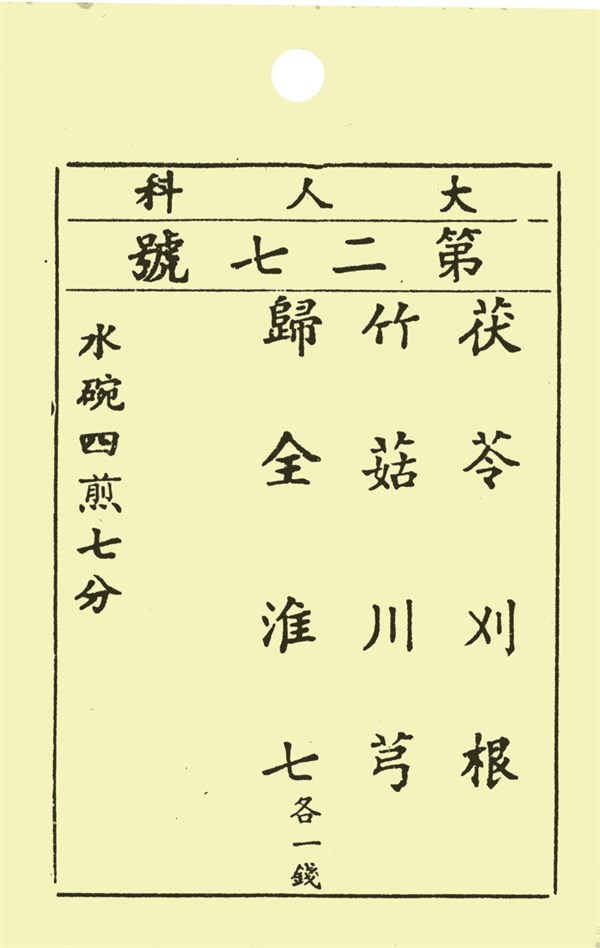 大人科
第二七號
茯苓刈根
竹菇川芎
歸全淮七各一錢
水碗四煎七分